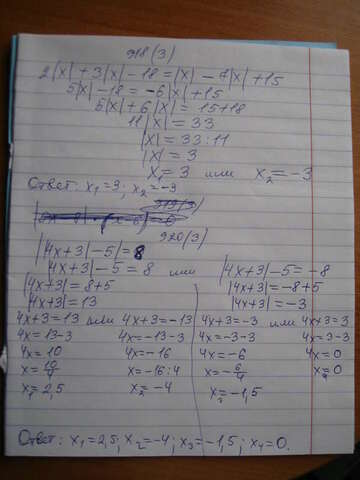 918(3)
2|x| + 3|x| - 18 = |x| - 7|x| + 15
5|x| - 18 = -6|x| + 15
5|x| + 6|x| = 15+18
11|x| = 33
|x| = 33:11
|x| = 3
x₁ = 3 или x₂ = -3
Ответ: x₁ = 3; x₂ = -3
919(3)
920(3)
||4x+3| - 5| = 8
|4x+3| - 5 = 8 или |4x+3| - 5 = -8
|4x+3| = 8+5 |4x+3| = -8+5
|4x+3| = 13 |4x+3| = -3
4x+3 = 13 или 4x+3 = -13 4x+3 = -3 или 4x+3 = 3
4x = 13-3 4x = -13-3 4x = -3-3 4x = 3-3
4x = 10 4x = -16 4x = -6 4x = 0
x = 10/4 x = -16:4 x = -6/4 x₄ = 0
x₁ = 2,5 x₂ = -4 x₃ = -1,5
Ответ: x₁ = 2,5; x₂ = -4; x₃ = -1,5; x₄ = 0.